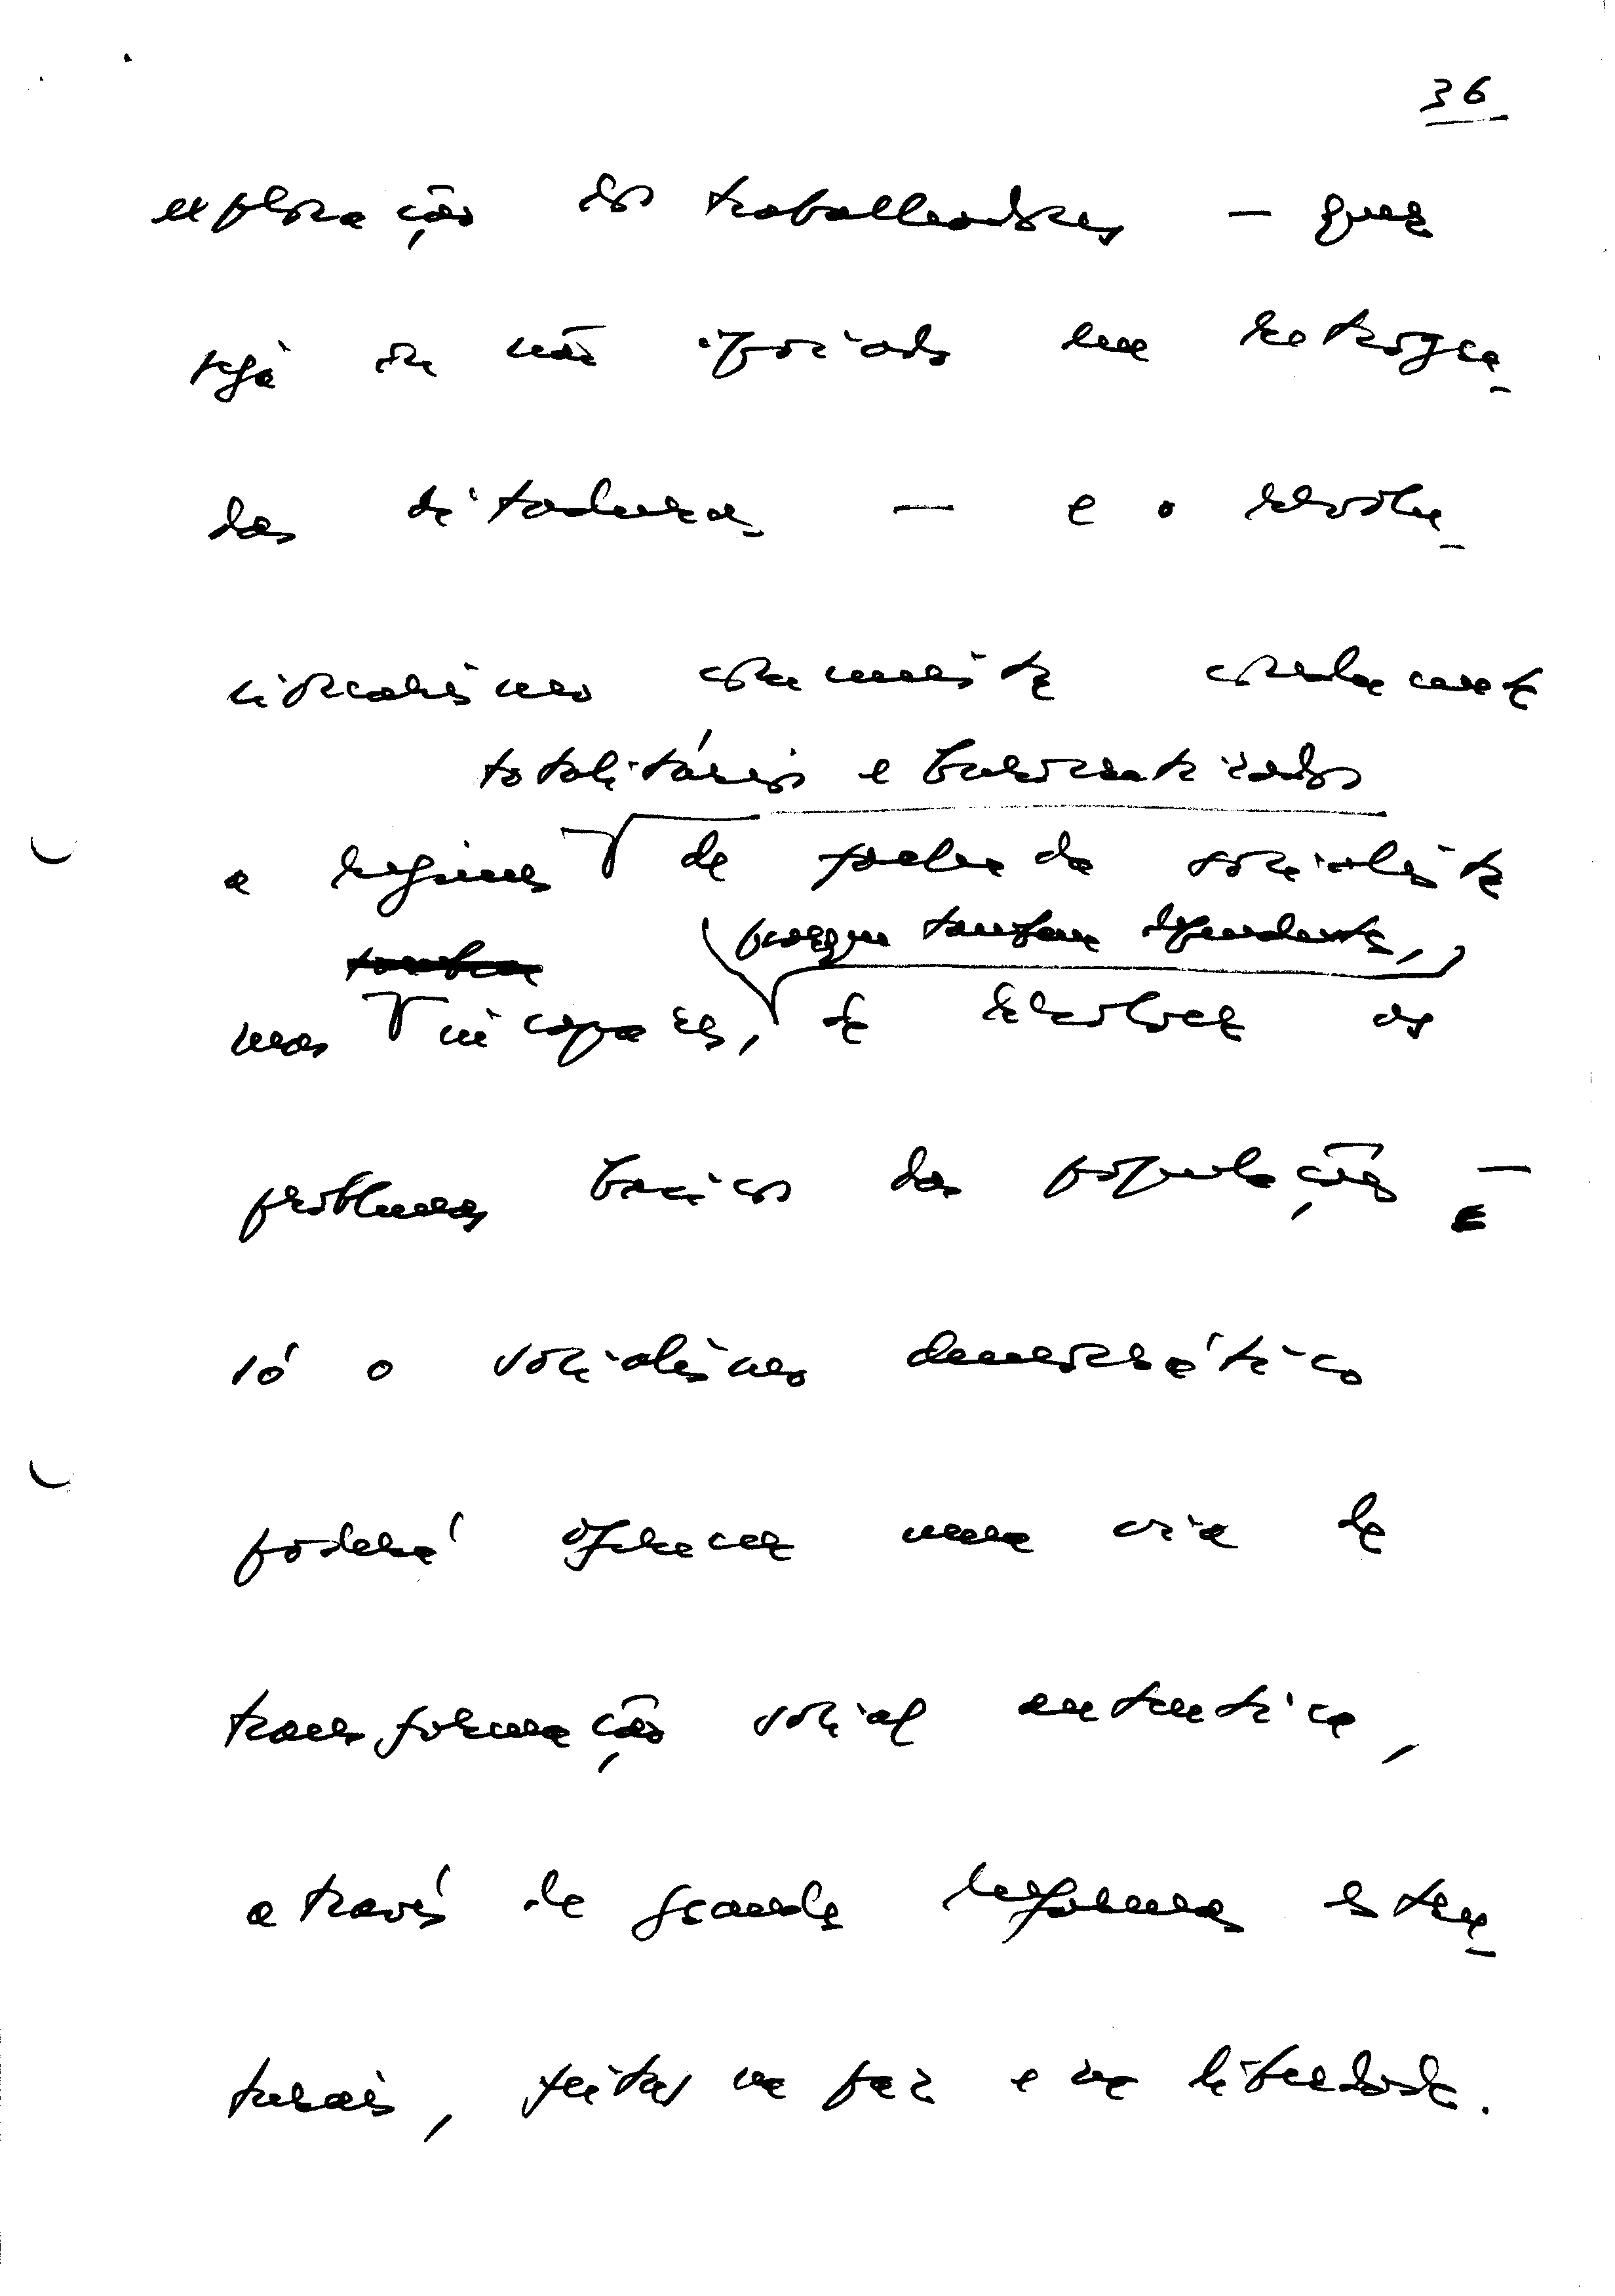 36
exploração dos trabalhadores — quer
seja ou não apoiado em retrogra-
das ditaduras — e o revolu-
cionarismo comunista conducente
totalitários e burocratizados
a regimes de fachada socialista
porque também dependentes,
mas incapazes, de resolver os
problemas básicos das populações —
só o socialismo democrático
poderá oferecer uma via de
transformação social autêntica,
através de grandes reformas estru-
turais, feitas na paz e na liberdade.